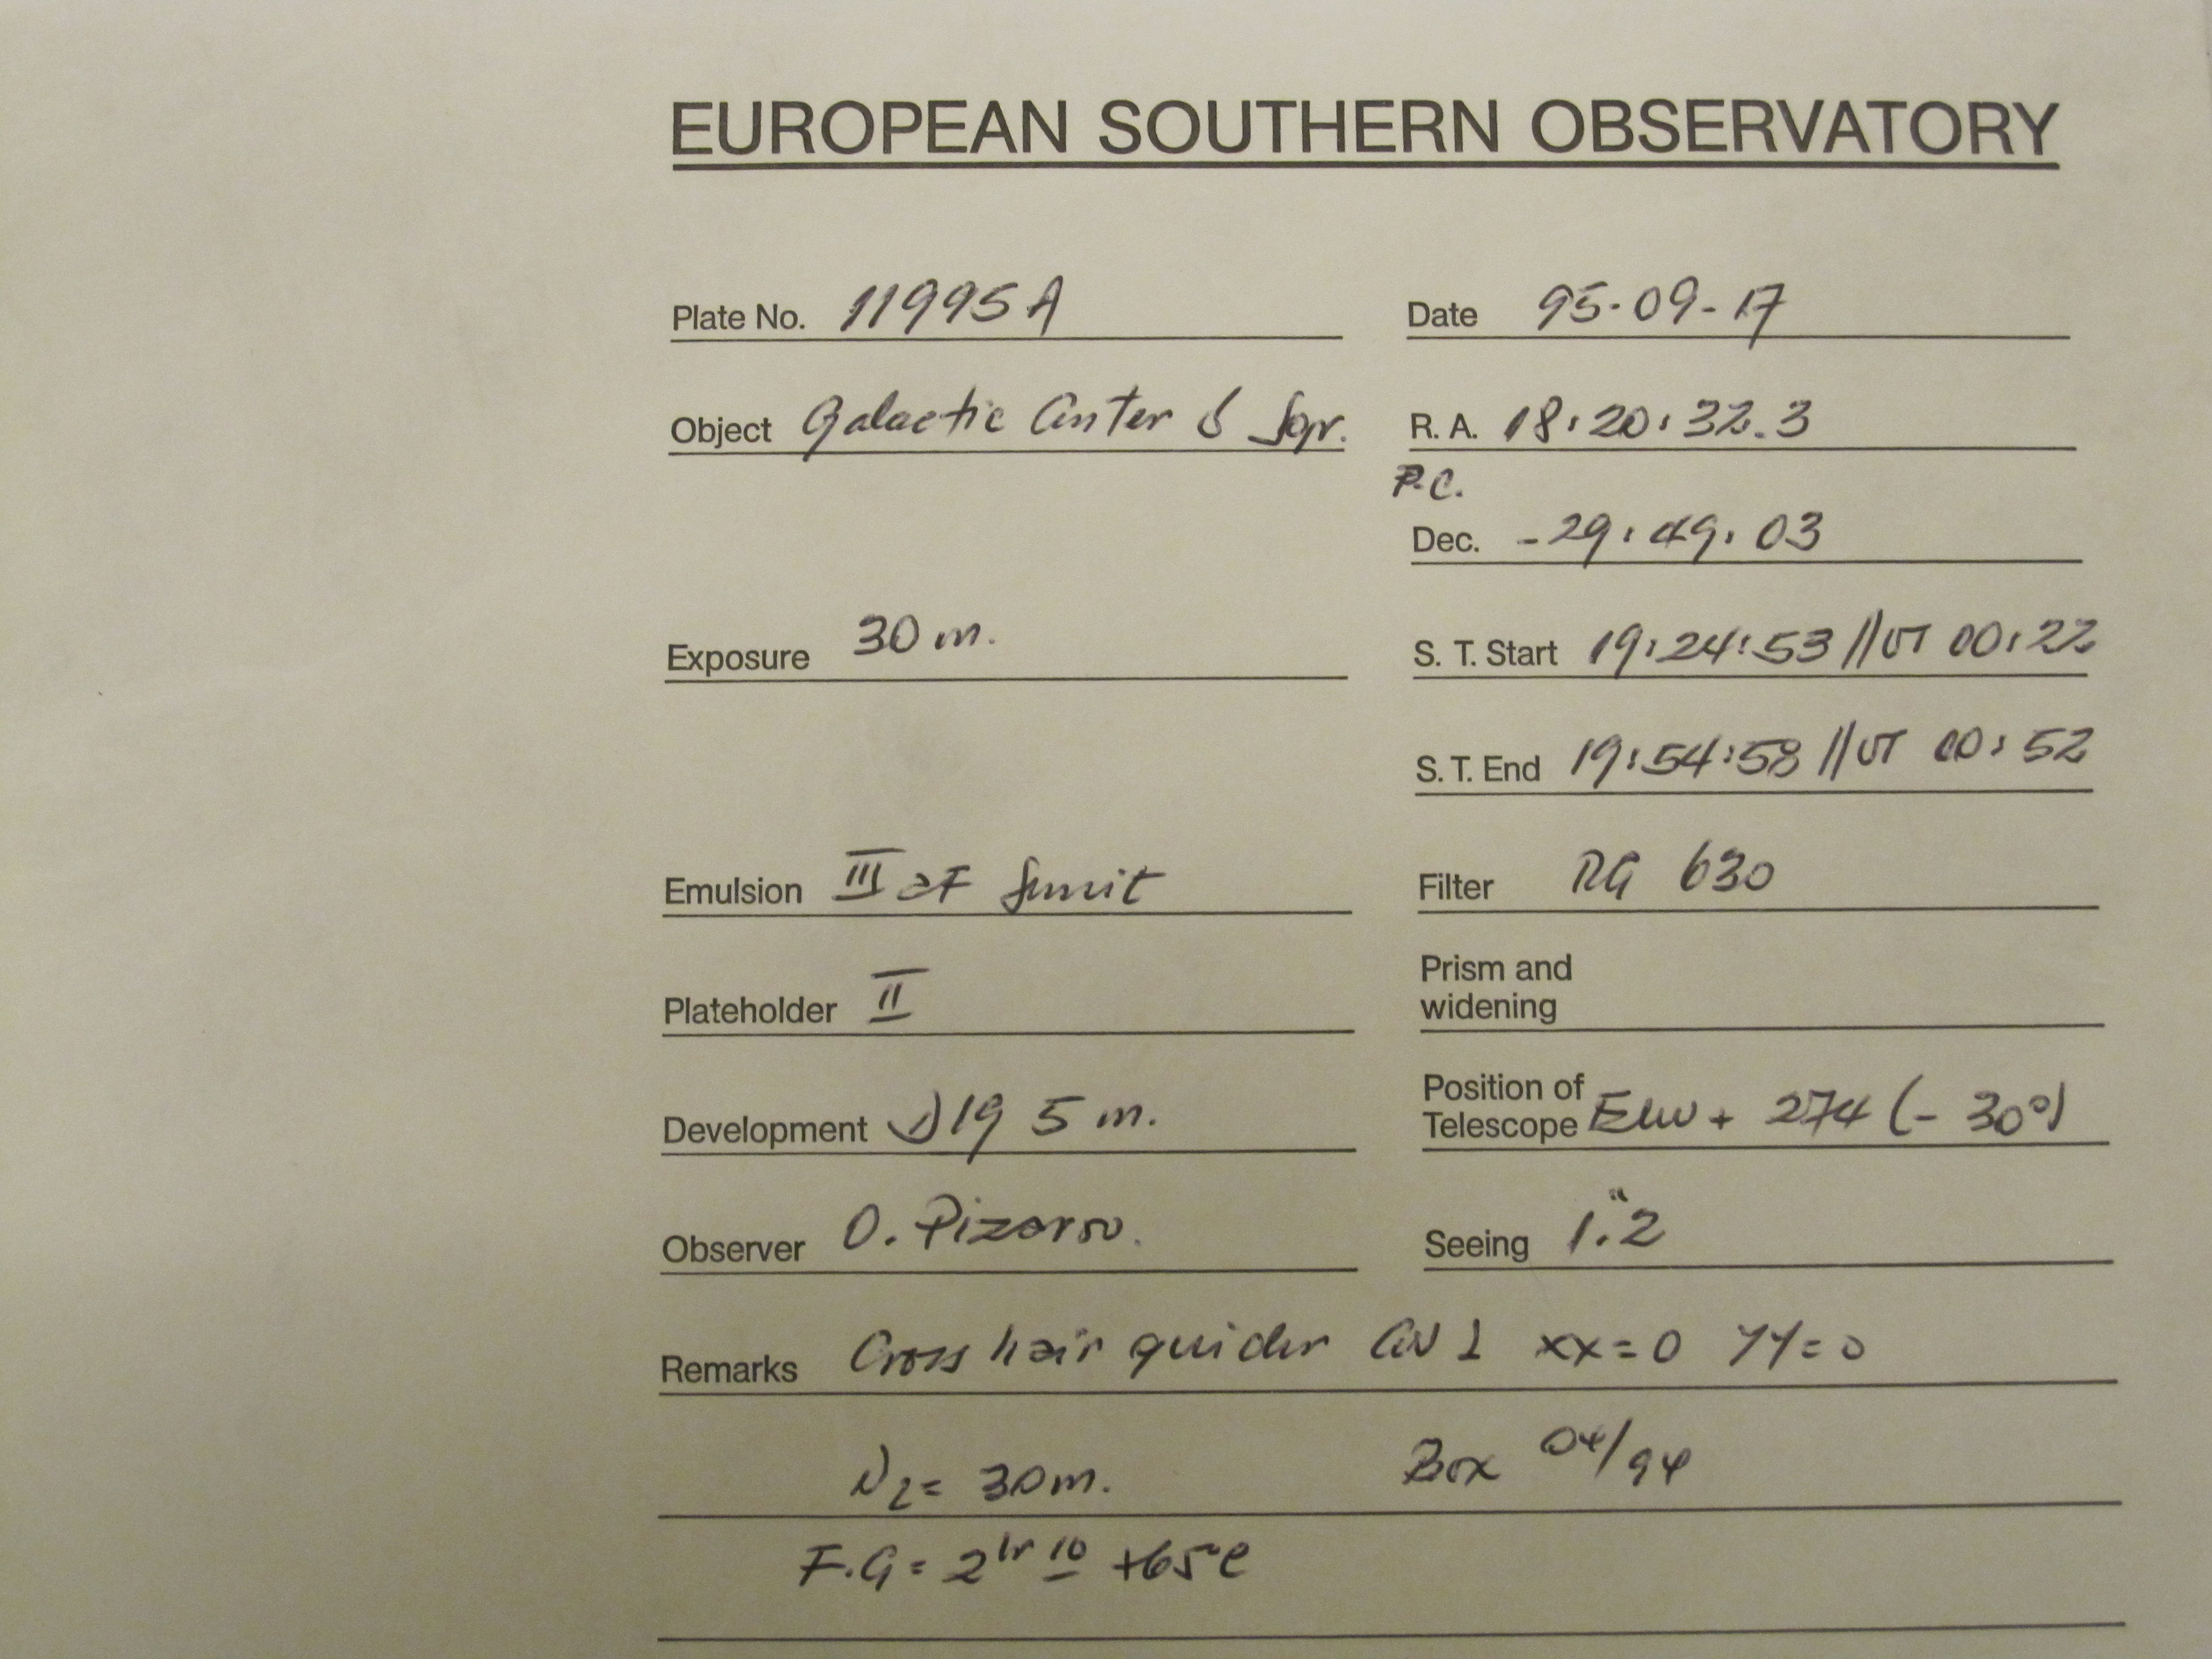 EUROPEAN SOUTHERN OBSERVATORY
Plate No. 11995 A Date 95-09-17
Object Galactic Center δ Sgr. R. A. 18:20:32.3
P.C.
Dec. -29:49:03
Exposure 30 m. S. T. Start 19:24:53 // UT 00:22
S. T. End 19:54:58 // UT 00:52
Emulsion III aF Filter RG 630
Plateholder II Prism and
widening
Development D19 5 m. Position of
Telescope + 274 (- 30°)
Observer O. Pizarro. Seeing 1.″2
Remarks Cross hair guider xx=0 YY=0
N2= 30m. Box 04/94
F.G= 2hr 10 +65°C